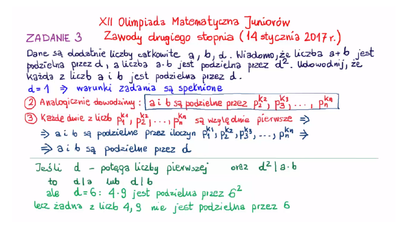 XII Olimpiada Matematyczna Juniorów
ZADANIE 3 Zawody drugiego stopnia (14 stycznia 2017 r.)
Dane są dodatnie liczby całkowite a, b, d. Wiadomo, że liczba a+b jest
podzielna przez d, a liczba a·b jest podzielna przez d². Udowodnij, że
każda z liczb a i b jest podzielna przez d.
d=1 ⇒ warunki zadania są spełnione
② Analogicznie dowodzimy: a i b są podzielne przez p₂^k₂, p₃^k₃, ..., pₙ^kₙ
③ Każde dwie z liczb p₁^k₁, p₂^k₂, ..., pₙ^kₙ są względnie pierwsze ⇒
⇒ a i b są podzielne przez iloczyn p₁^k₁, p₂^k₂, p₃^k₃, ..., pₙ^kₙ ⇒
⇒ a i b są podzielne przez d
Jeśli d – potęga liczby pierwszej oraz d² | a·b
to d|a lub d|b
ale d=6: 4·9 jest podzielna przez 6²
lecz żadna z liczb 4, 9 nie jest podzielna przez 6